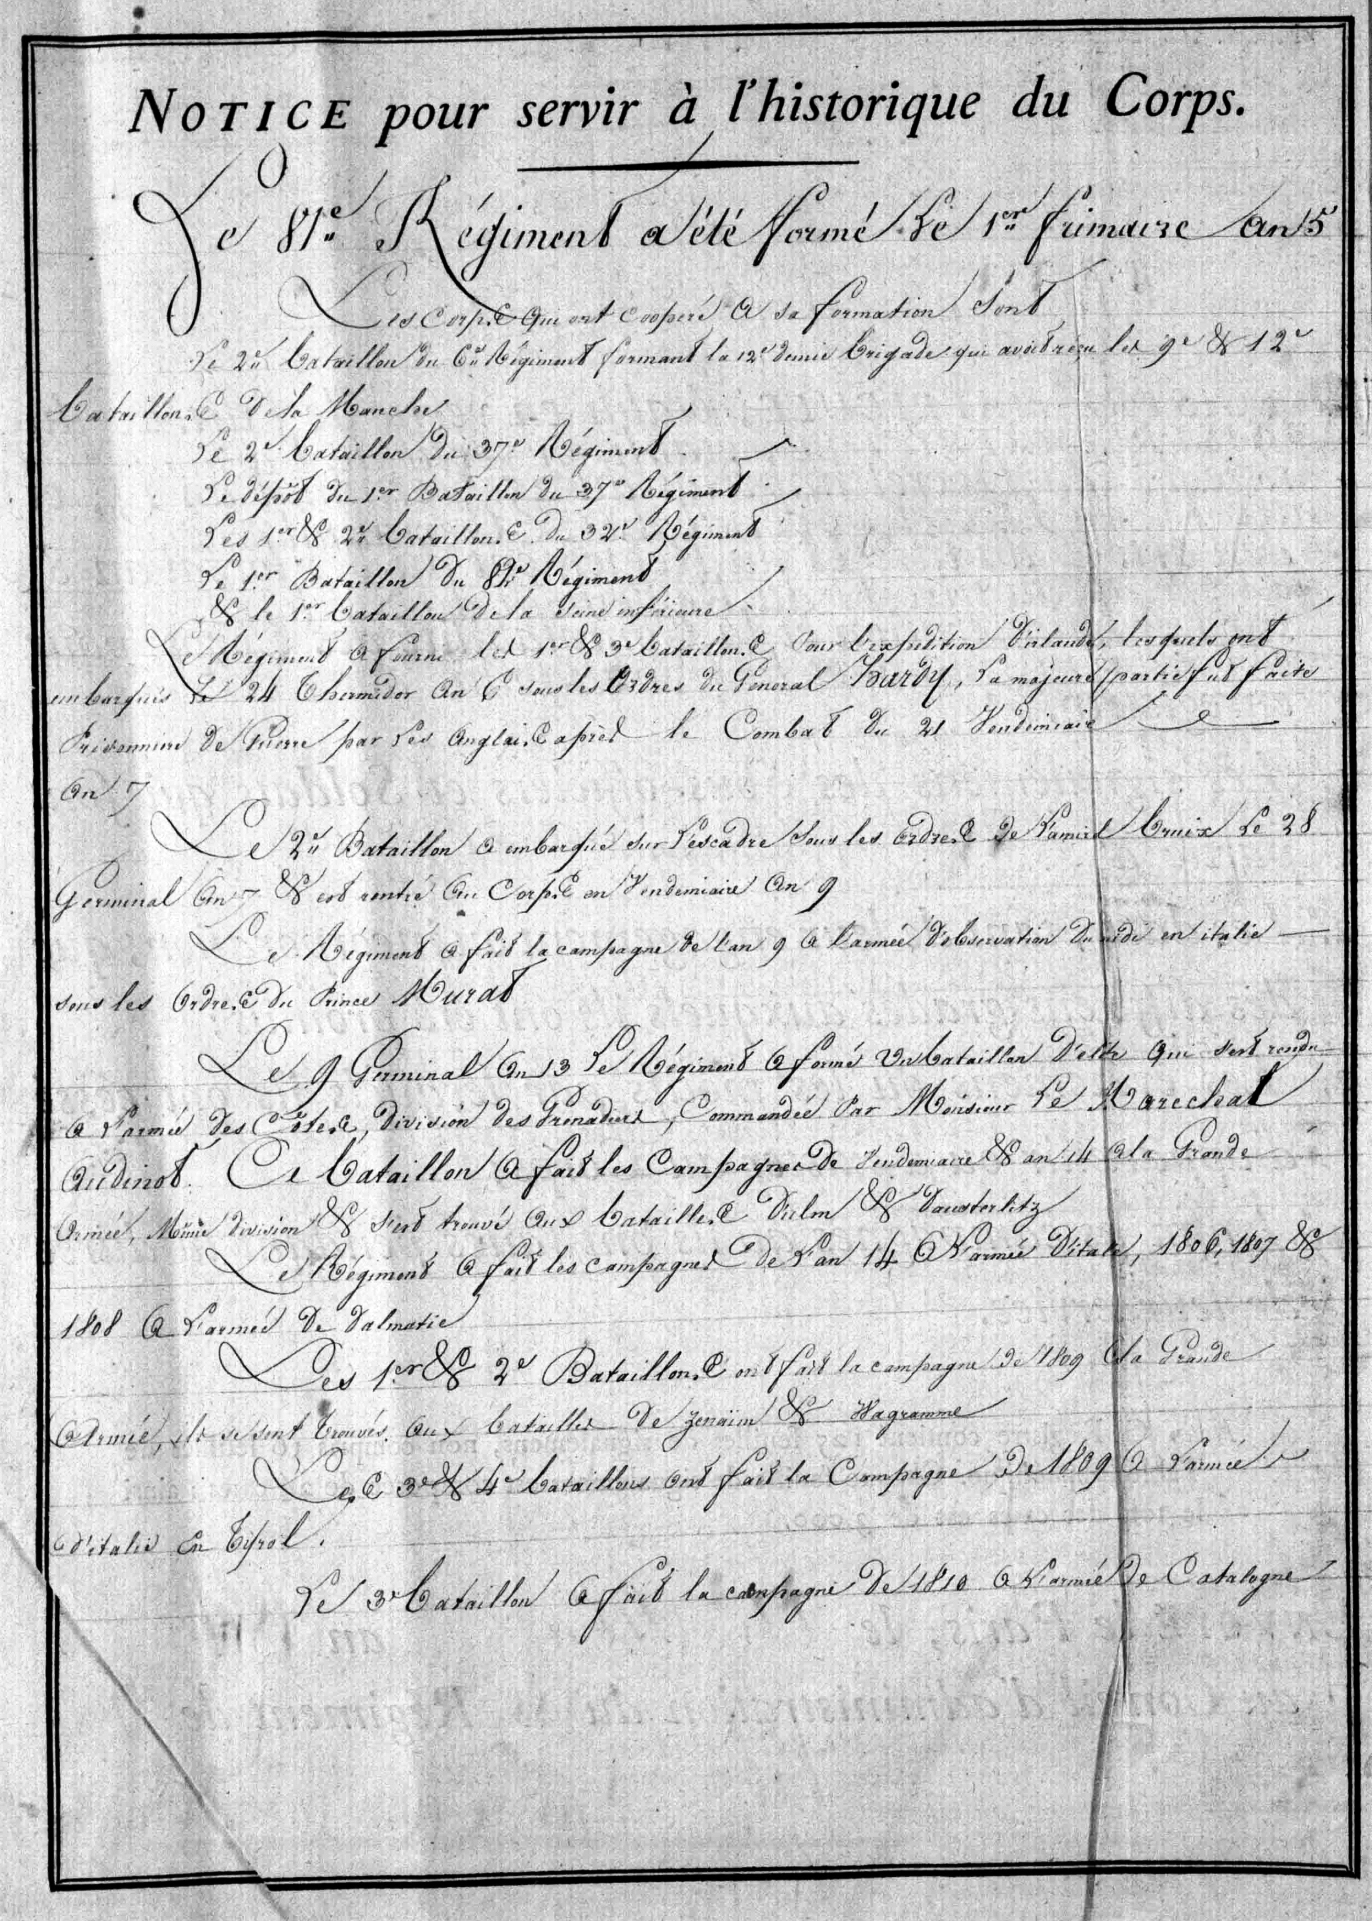 NOTICE pour servir à l'historique du Corps.
Le 81e Régiment a été formé Le 1er frimaire an 5
Les Corps qui ont coopéré a sa formation Sont
Le 2e bataillon du 6e Régiment formant la 12e demie brigade qui avoit reçu les 9e & 12e
bataillons De la Manche
Le 2e bataillon du 37e Régiment
Le dépôt du 1er Bataillon du 37e Régiment
Les 1er & 2e bataillons du 32e Régiment
Le 1er Bataillon Du Régiment
& le 1er bataillon De la Seine inférieure
Le Régiment a fourni les 1er & 3e bataillons Pour l'expédition D'irlande, lesquels ont
embarqués le 24 Thermidor An 6 sous les Ordres du Général Hardy, La majeure partie fut faite
Prisonniere De Guerre par Les Anglais après le Combat du 21 Vendemiaire
An 7
Le 2e Bataillon a embarqué sur L'escadre Sous les ordres De L'amiral bruix Le 28
Germinal An 7 & est rentré Au Corps en Vendemiaire An 9
Le Régiment a fait la campagne de l'an 9 a l'armée D'observation Du midi en italie
sous les Ordres du Prince Murat
Le 9 Germinal An 13 Le Régiment a formé Un bataillon D'elite qui s'est rendu
a L'armée des Côtes, Division des Grenadiers, Commandée Par Monsieur Le Marechal
Oudinot. Ce bataillon a fait les Campagnes De Vendemiaire & an 14 a la Grande
Armée, Même division & s'est trouvé Aux batailles D'ulm & D'austerlitz
Le Régiment a fait les campagnes De L'an 14 a L'armée D'italie, 1806, 1807 &
1808 a L'armée De Dalmatie
Les 1er & 2e Bataillons ont fait la campagne De 1809 a la Grande
Armée, ils se sont trouvés aux batailles De Zenaim & Wagramme
Les 3e & 4e bataillons ont fait la Campagne De 1809 a L'armée
d'italie En Tyrol.
Le 3e bataillon a fait la campagne De 1810 a L'armée De Catalogne